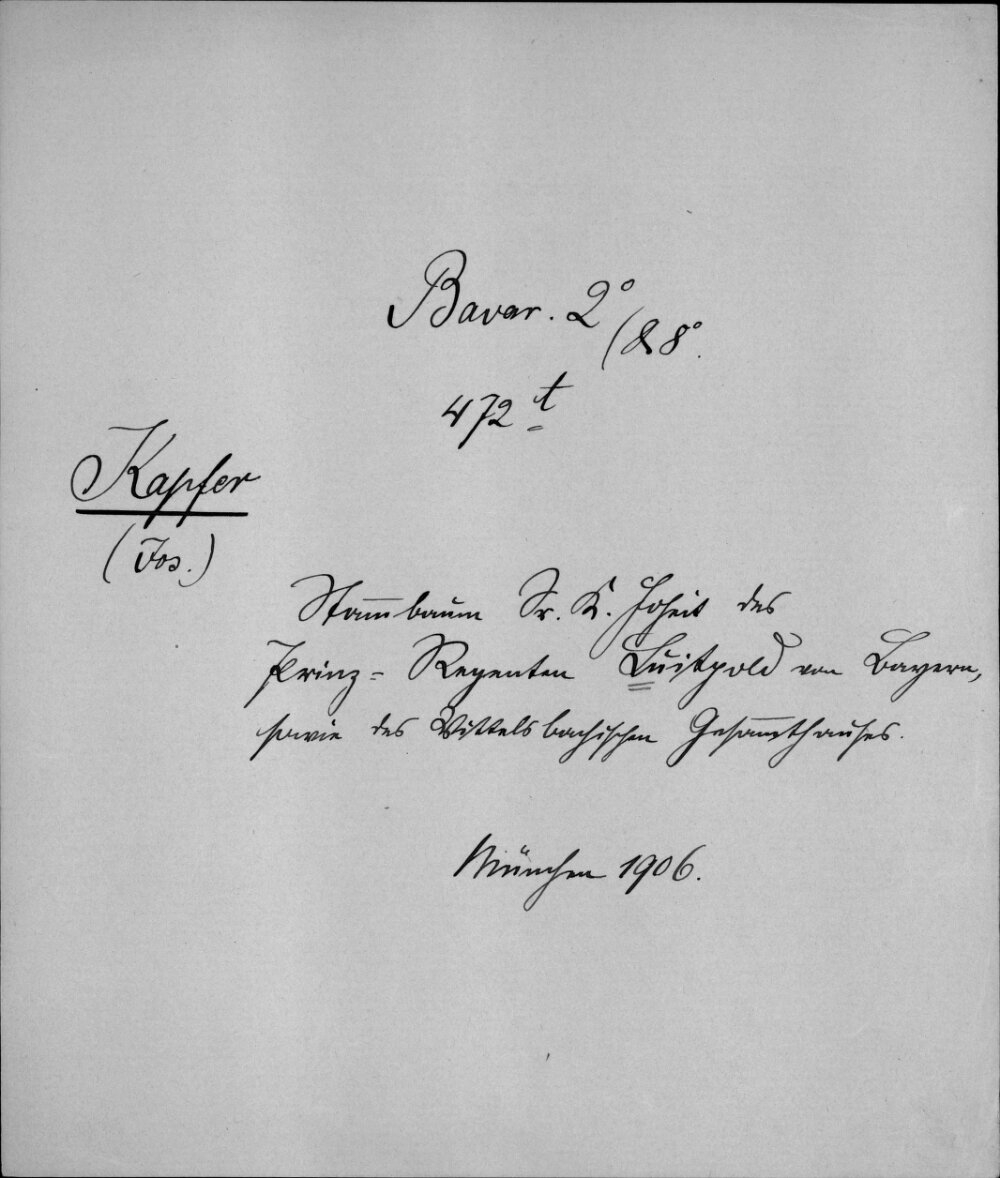 Bavar. 2°
(& 8°.
472 t
Kapfer
(Jos.)
Stam̅baum Sr. K. Hoheit des
Prinz-Regenten Luitpold von Bayern,
sowie des Wittelsbachischen Gesam̅thauses.
München 1906.